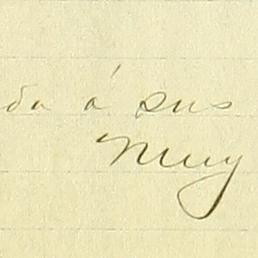 da á sus
Muy